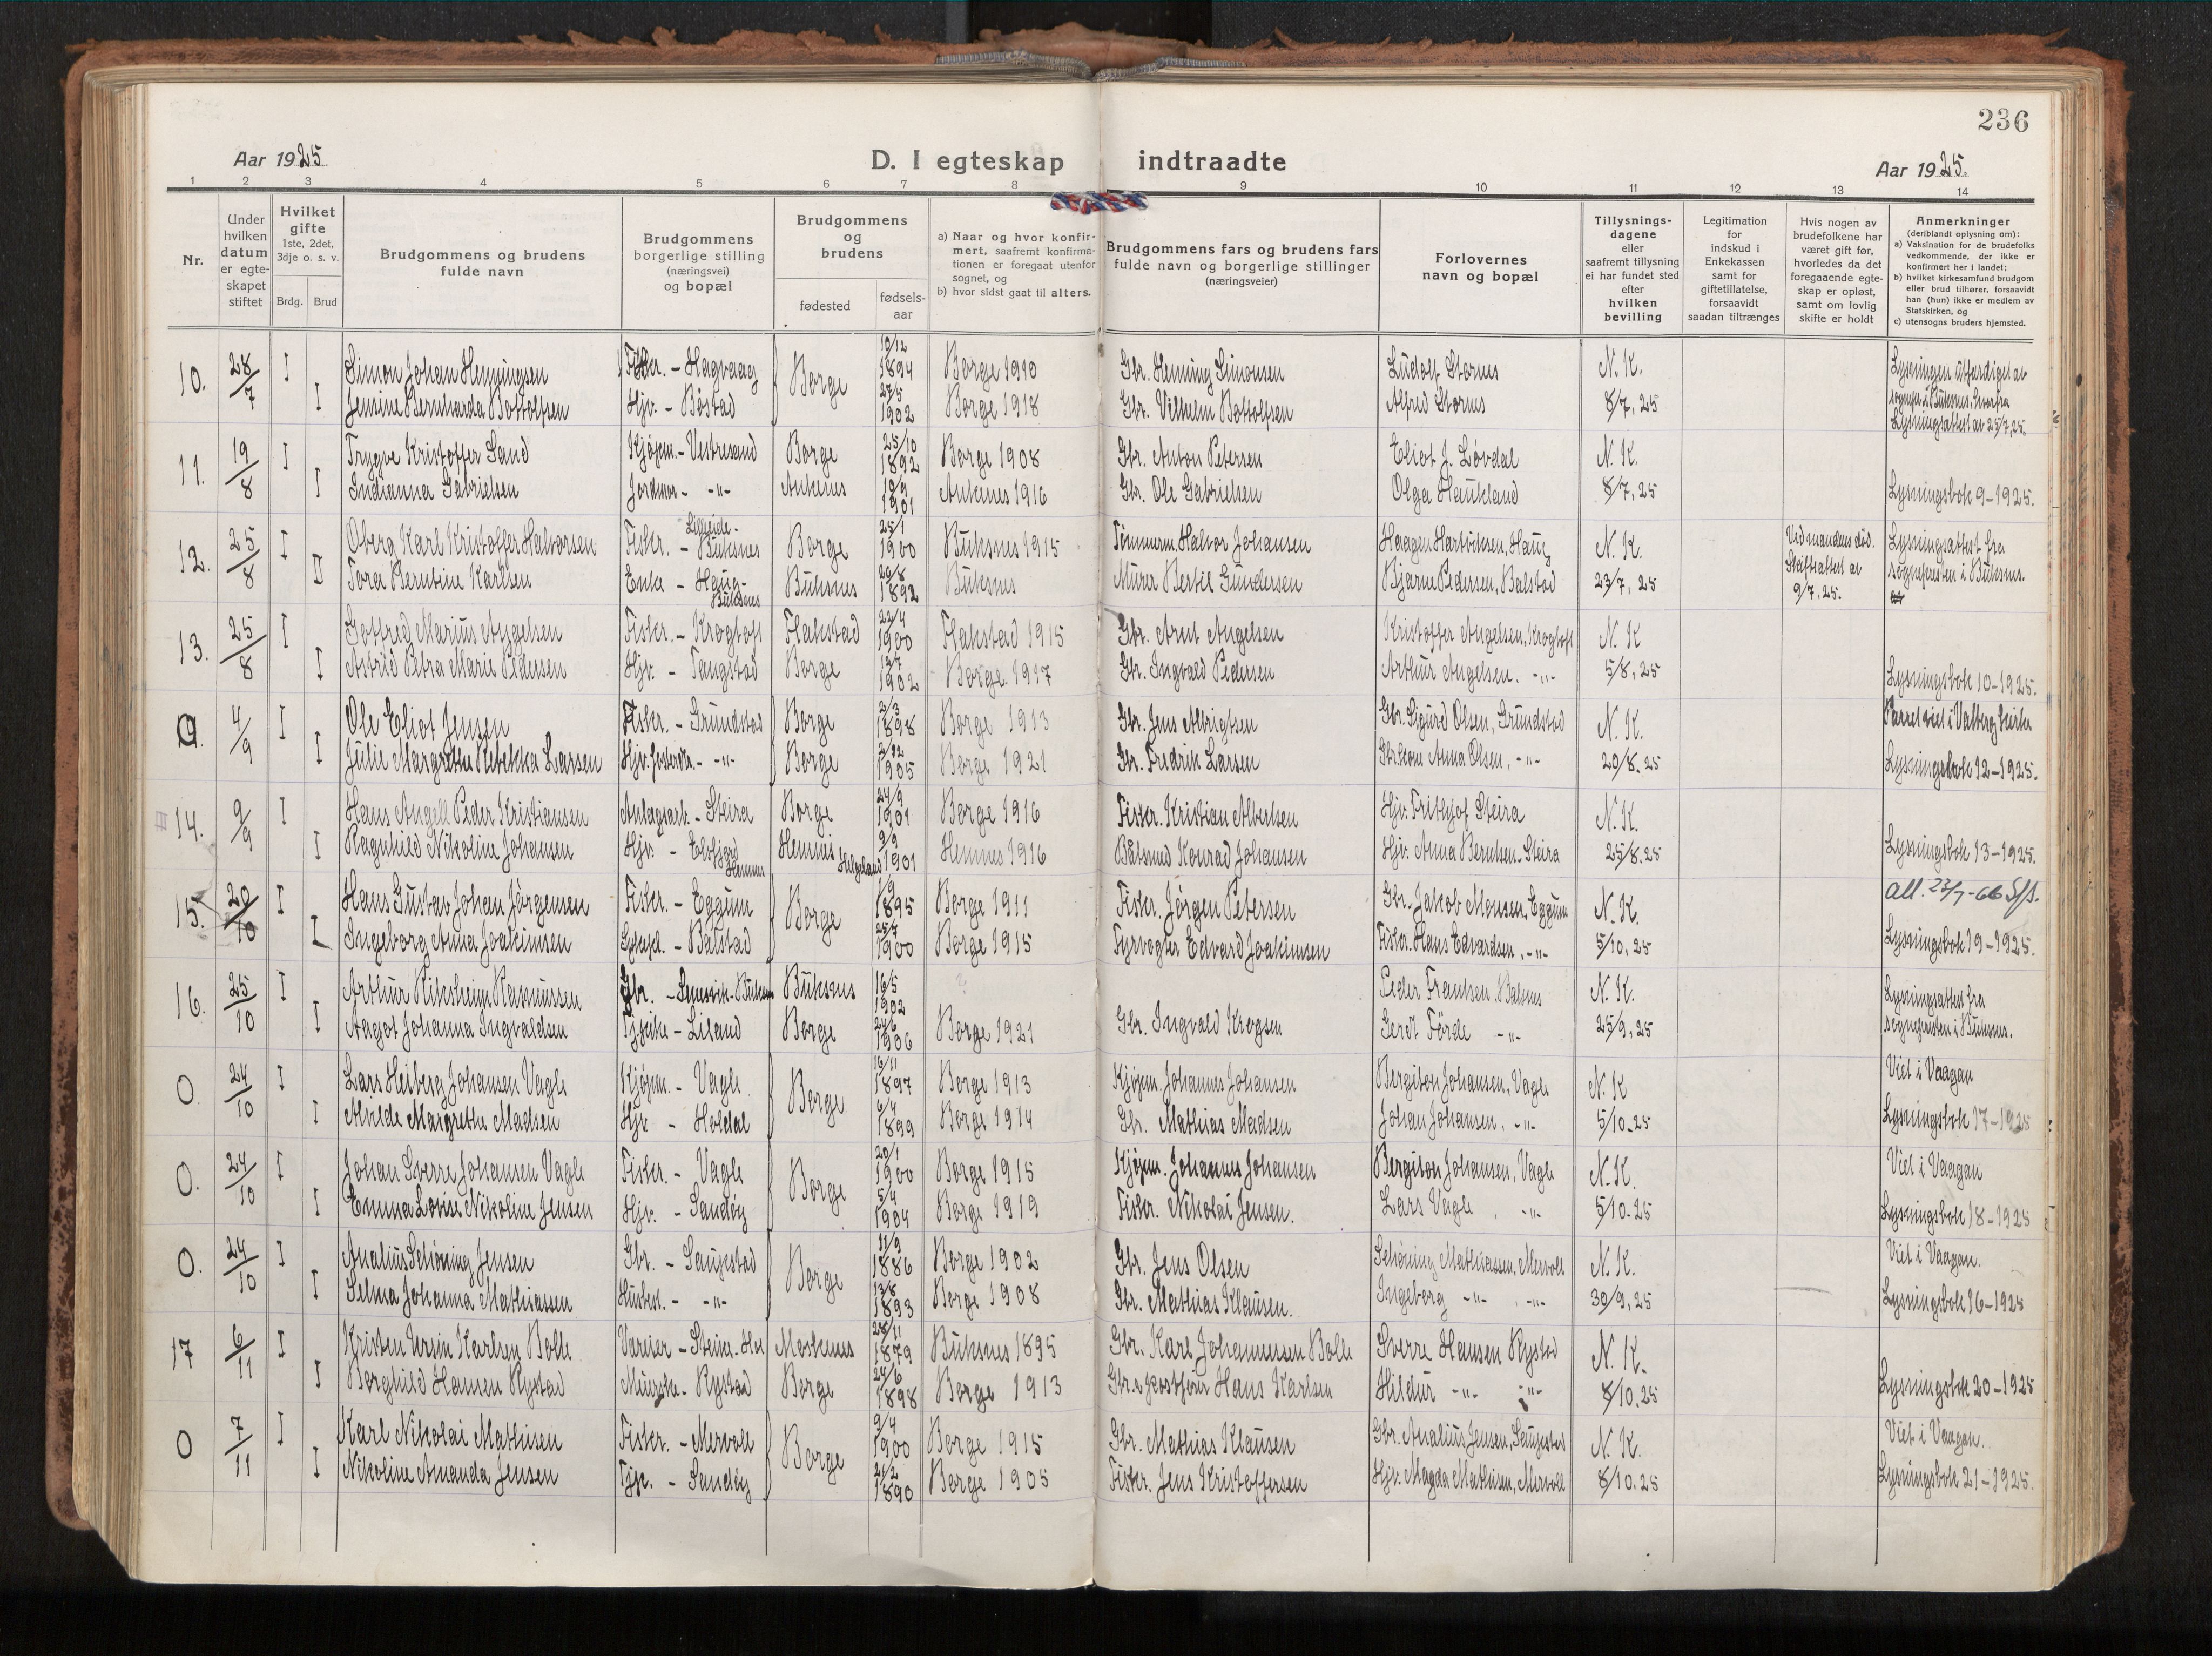 236
Aar 1925.
D. I egteskap indtraadte
Aar 1925.
1 2 3 4 5 6 7 8 9 10 11 12 13 14
Nr.
Under hvilken datum er egte- skapet stiftet
Hvilket gifte 1ste, 2det, 3dje o. s. v.
Brdg. Brud
Brudgommens og brudens fulde navn
Brudgommens borgerlige stilling (næringsvei) og bopæl
Brudgommens og brudens
fødested fødsels- aar
a) Naar og hvor konfir- mert, saafremt konfirma- tionen er foregaat utenfor sognet, og
b) hvor sidst gaat til alters.
Brudgommens fars og brudens fars fulde navn og borgerlige stillinger (næringsveier)
Forlovernes navn og bopæl
Tillysnings- dagene eller saafremt tillysning ei har fundet sted efter hvilken bevilling
Legitimation for indskud i Enkekassen samt for giftetillatelse, forsaavidt saadan tiltrænges
Hvis nogen av brudefolkene har været gift før, hvorledes da det foregaaende egte- skap er opløst, samt om lovlig skifte er holdt
Anmerkninger (deriblandt oplysning om):
a) Vaksination for de brudefolks vedkommende, der ikke er konfirmert her i landet;
b) hvilket kirkesamfund brudgom eller brud tilhører, forsaavidt han (hun) ikke er medlem av Statskirken, og
c) utensogns bruders hjemsted.
10. 28/7 I Simon Johan Henningsen Fisker. - Hagvaag Borge 10/12 1894 Borge 1910 Gbr. Henning Simonsen Ludolf Stornes N. K. Lysningen utfærdiget av
I Jensine Bernharda Bottolfsen Hjv. - Bøstad 27/5 1902 Borge 1918 Gbr. Vilhelm Bottolfsen Alfred Stornes 8/7, 25 sognepr. i Buksnes, hvorfra
Lysningsattest av 25/7, 25.
11. 19/8 I Trygve Kristoffer Sand Kjøpm. - Vestresand Borge 25/10 1892 Borge 1908 Gbr. Anton Petersen Eliot J. Løvdal N. K.
I Indianna Gabrielsen Jordmor - -"- Ankenes 10/9 1901 Ankenes 1916 Gbr. Ole Gabrielsen Olga Haukland 8/7, 25 Lysningsbok 9-1925.
12. 25/8 I Oberg Karl Kristoffer Halvorsen Fisker. - Buksnes Borge 25/1 1900 Buksnes 1915 Tømmerm. Halvor Johansen Haagen Hartviksen, Haug N. K. Ved mandens død. Lysningsattest fra
II Tora Bentine Karlsen Enke - Haug - Buksnes Buksnes 20/8 1892 Buksnes Murer Bertil Gundersen Bjarne Pedersen, Balstad 23/7, 25 Skifteattest av 9/7, 25. sognepresten i Buksnes.
13. 25/8 I Gotfred Marius Angelsen Fisker. - Krogtoft Flakstad 22/4 1900 Flakstad 1915 Gbr. Arnt Angelsen Kristoffer Angelsen, Krogtoft N. K
I Astrid Petra Marie Pedersen Hjv. - Tangstad Borge 12/7 1902 Borge 1917 Gbr. Ingvald Pedersen Arthur Angelsen. -"- 5/8, 25 Lysningsbok 10-1925.
0. 4/9 I Ole Eliot Jensen Fisker. - Grundstad Borge 2/3 1898 Borge 1913 Gbr. Jens Albrigtsen Gbr. Sigurd Olsen, Grundstad N. K. Parret viet i Valberg kirke
I Julie Margrethe Rebekka Larsen Hjv. -"- Borge 2/12 1905 Borge 1921 Gbr. Fredrik Larsen Anna Olsen, -"- 20/8. 25 Lysningsbok 12-1925.
14. 9/9 I Hans Angell Peder Kristiansen Anlægsarb. - Steira Borge 24/9 1901 Borge 1916 Fisker. Kristian Albertsen Hjv. Frithjof Steira N. K.
I Ragnhild Nikoline Johansen Hjv. - Hemnes Hemnes Helgeland 9/9 1901 Hemnes 1916 Konrad Johansen Hjv. Anna Berntsen - Steira 25/8. 25 Lysningsbok 13-1925.
15. 20/10 I Hans Gustav Johan Jørgensen Fisker. - Eggum Borge 1/9 1895 Borge 1911 Fisker. Jørgen Petersen Gbr. Jakob Monsen, Eggum N. K. att. 23/7-66
I Ingeborg Anna Joakimsen - Balstad 1900 Borge 1915 Fyrvogter Edvard Joakimsen Fisker. Hans Edvardsen, -"- 5/10, 25 Lysningsbok 19-1925.
16. 25/10 I Arthur Rasmussen Gbr. - Buksnes Buksnes 16/5 1902 Peder Frantsen, N. K. Lysningsattest fra
I Aagot Johanna Ingvaldsen - Liland Borge 24/6 1906 Borge 1921 Gbr. Ingvald Krogsen Gerdt Førde -"- 25/9, 25 sognepresten i Buksnes.
0. 24/10 I Lars Heiberg Johansen Vagle Kjøpm. - Vagle Borge 16/11 1897 Borge 1913 Kjøpm. Johannes Johansen Bergiton Johansen, Vagle N. K Viet i Vaagan
I Alvilde Margrethe Madsen Hjv. - Holdal 6/4 1899 Borge 1914 Gbr. Mathias Madsen Johan Johansen, -"- 5/10. 25 Lysningsbok 17-1925
0. 24/10 I Johan Sverre Johansen Vagle Fisker. - Vagle Borge 20/1 1900 Borge 1915 Kjøpm. Johannes Johansen Bergiton Johansen, Vagle N. K. Viet i Vaagan
I Emma Lovise Nikoline Jensen Hjv. - Sandøy 5/4 1904 Borge 1919 Fisker. Nikolai Jensen. Lars Vagle, -"- 5/10. 25 Lysningsbok 18-1925
0. 24/10 I Analius Schöning Jensen Gbr. - Saupstad Borge 11/9 1886 Borge 1902 Gbr. Jens Olsen Schöning Mathiassen, Mervoll N. K. Viet i Vaagan.
I Selma Johanna Mathiassen Hushst. - -"- 13/8 1893 Borge 1908 Gbr. Mathias Klausen. Ingeborg -"- , -"- 30/9, 25 Lysningsbok 16-1925
17 6/11 I Kristen Ursin Karlsen Bolle Vareier - Steine - Hol Moskenes 28/11 1879 Buksnes 1895 Gbr. Karl Johannessen Bolle Sverre Hansen Rystad N. K.
I Borghild Hansen Rystad - Rystad Borge 24/6 1898 Borge 1913 Gbr. & postfører Hans Karlsen Hildur -"- -"- 8/10. 25 Lysningsbok 20-1925
0 7/11 I Karl Nikolai Mathisen Fisker. - Mervoll Borge 9/4 1900 Borge 1915 Gbr. Mathias Klausen Gbr. Analius Jensen, Saupstad N. K. Viet i Vaagan.
I Nikoline Amanda Jensen Tjp. - Sandøy 21/2 1890 Borge 1905 Fisker. Jens Kristoffersen Hjv. Magda Mathisen, Mervoll 8/10. 25 Lysningsbok 21-1925.